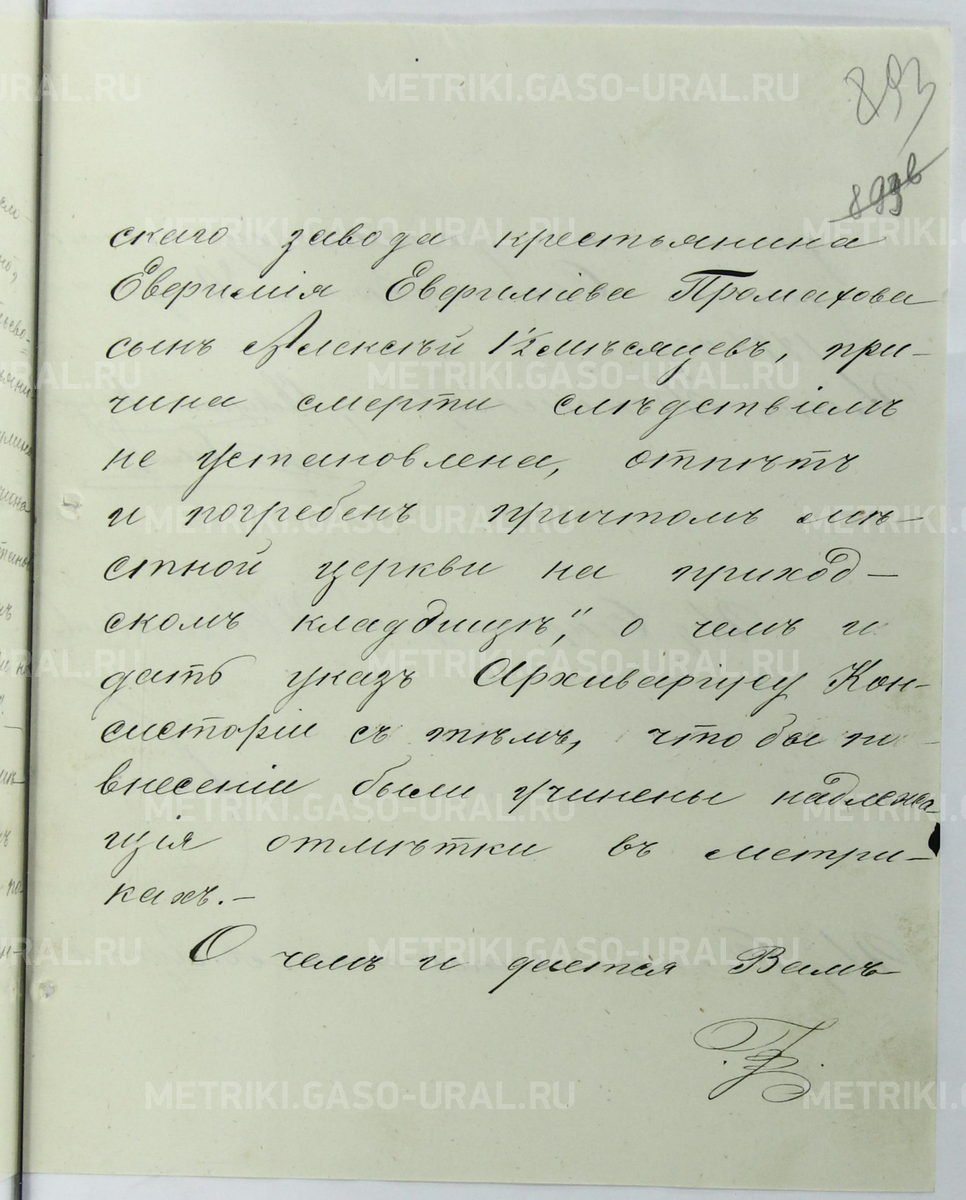 893
скаго завода крестьянина
Евѳимія Евѳиміева Промахова
сынъ Алексѣй 1½ мѣсяцевъ, при-
чина смерти слѣдствіемъ
не установлена, отпѣтъ
и погребенъ причтомъ мѣ-
стной церкви на приход-
скомъ кладбищѣ", о чемъ и
дать указъ Архиваріусу Кон-
систоріи съ тѣмъ, что бы по
внесеніи были учинены надлежа-
щія отмѣтки въ метри-
кахъ.-
О чемъ и дается Вамъ
METRIKI.GASO-URAL.RU